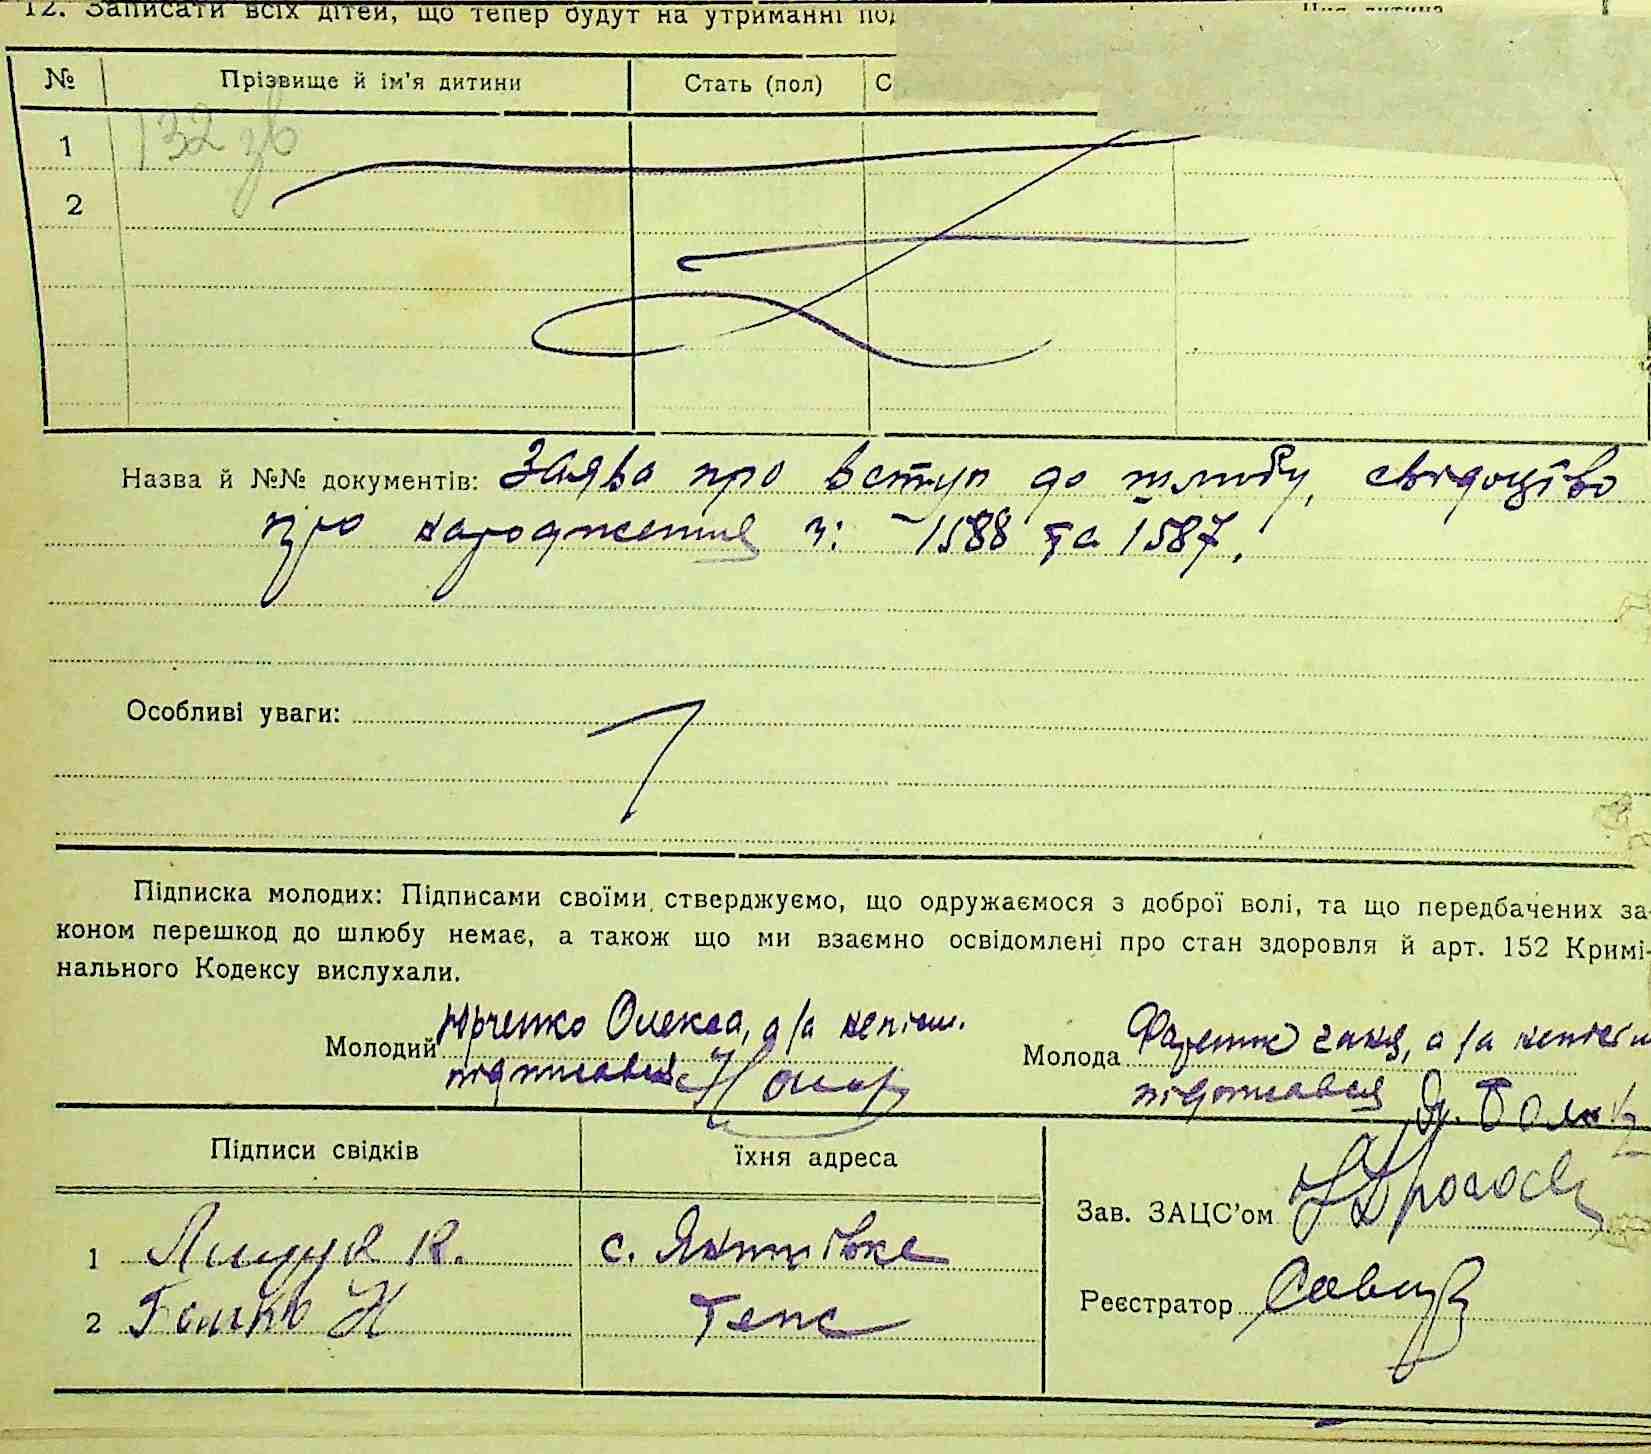 12. Записати всіх дітей, що тепер будут на утриманні
№ Прізвище й ім'я дитини Стать (пол) С
132 зв
1
2
Назва й №№ документів: Заява про вступ до шлюбу, свідоцтво
про народження з: 1588 та 1587.
Особливі уваги:
Підписка молодих: Підписами своїми стверджуємо, що одружаємося з доброї волі, та що передбачених за-
коном перешкод до шлюбу немає, а також що ми взаємно освідомлені про стан здоровля й арт. 152 Кримі-
нального Кодексу вислухали.
Молодий Юрченко Олекса, а/а неписм.
підписався
Молода Ганя, а/а неписм
підписався
Підписи свідків їхня адреса
Зав. ЗАЦС'ом
1 к. с. Яхниківка
2 Н теж
Реєстратор